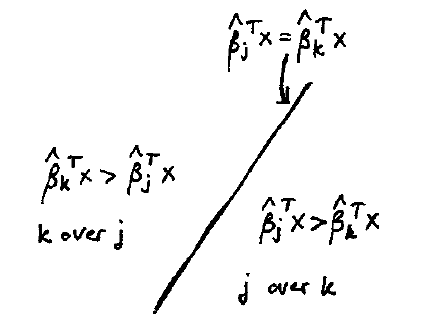 β̂ⱼᵀx = β̂ₖᵀx
β̂ₖᵀx > β̂ⱼᵀx
k over j
β̂ⱼᵀx > β̂ₖᵀx
j over k